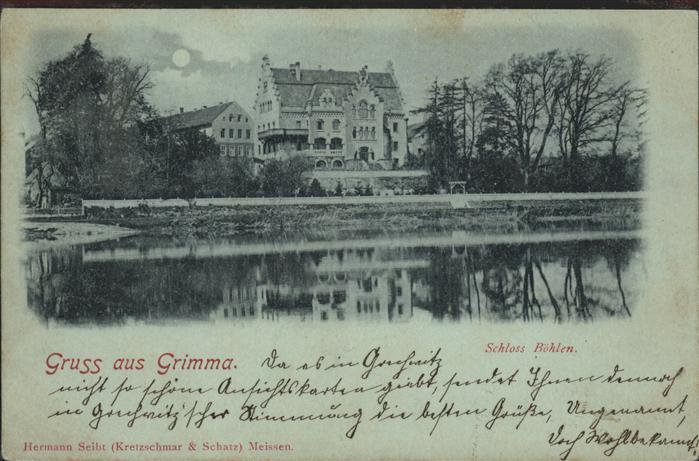 Schloss Böhlen.
Gruss aus Grimma.
Da es in Grechwitz
nicht so schöne Ansichtskarten giebt, sendet Ihnen dennoch
in Grechwitz'scher Stimmung die besten Grüße, Ungenannt,
doch Wohlbekannt
Hermann Seibt (Kretzschmar & Schatz) Meissen.